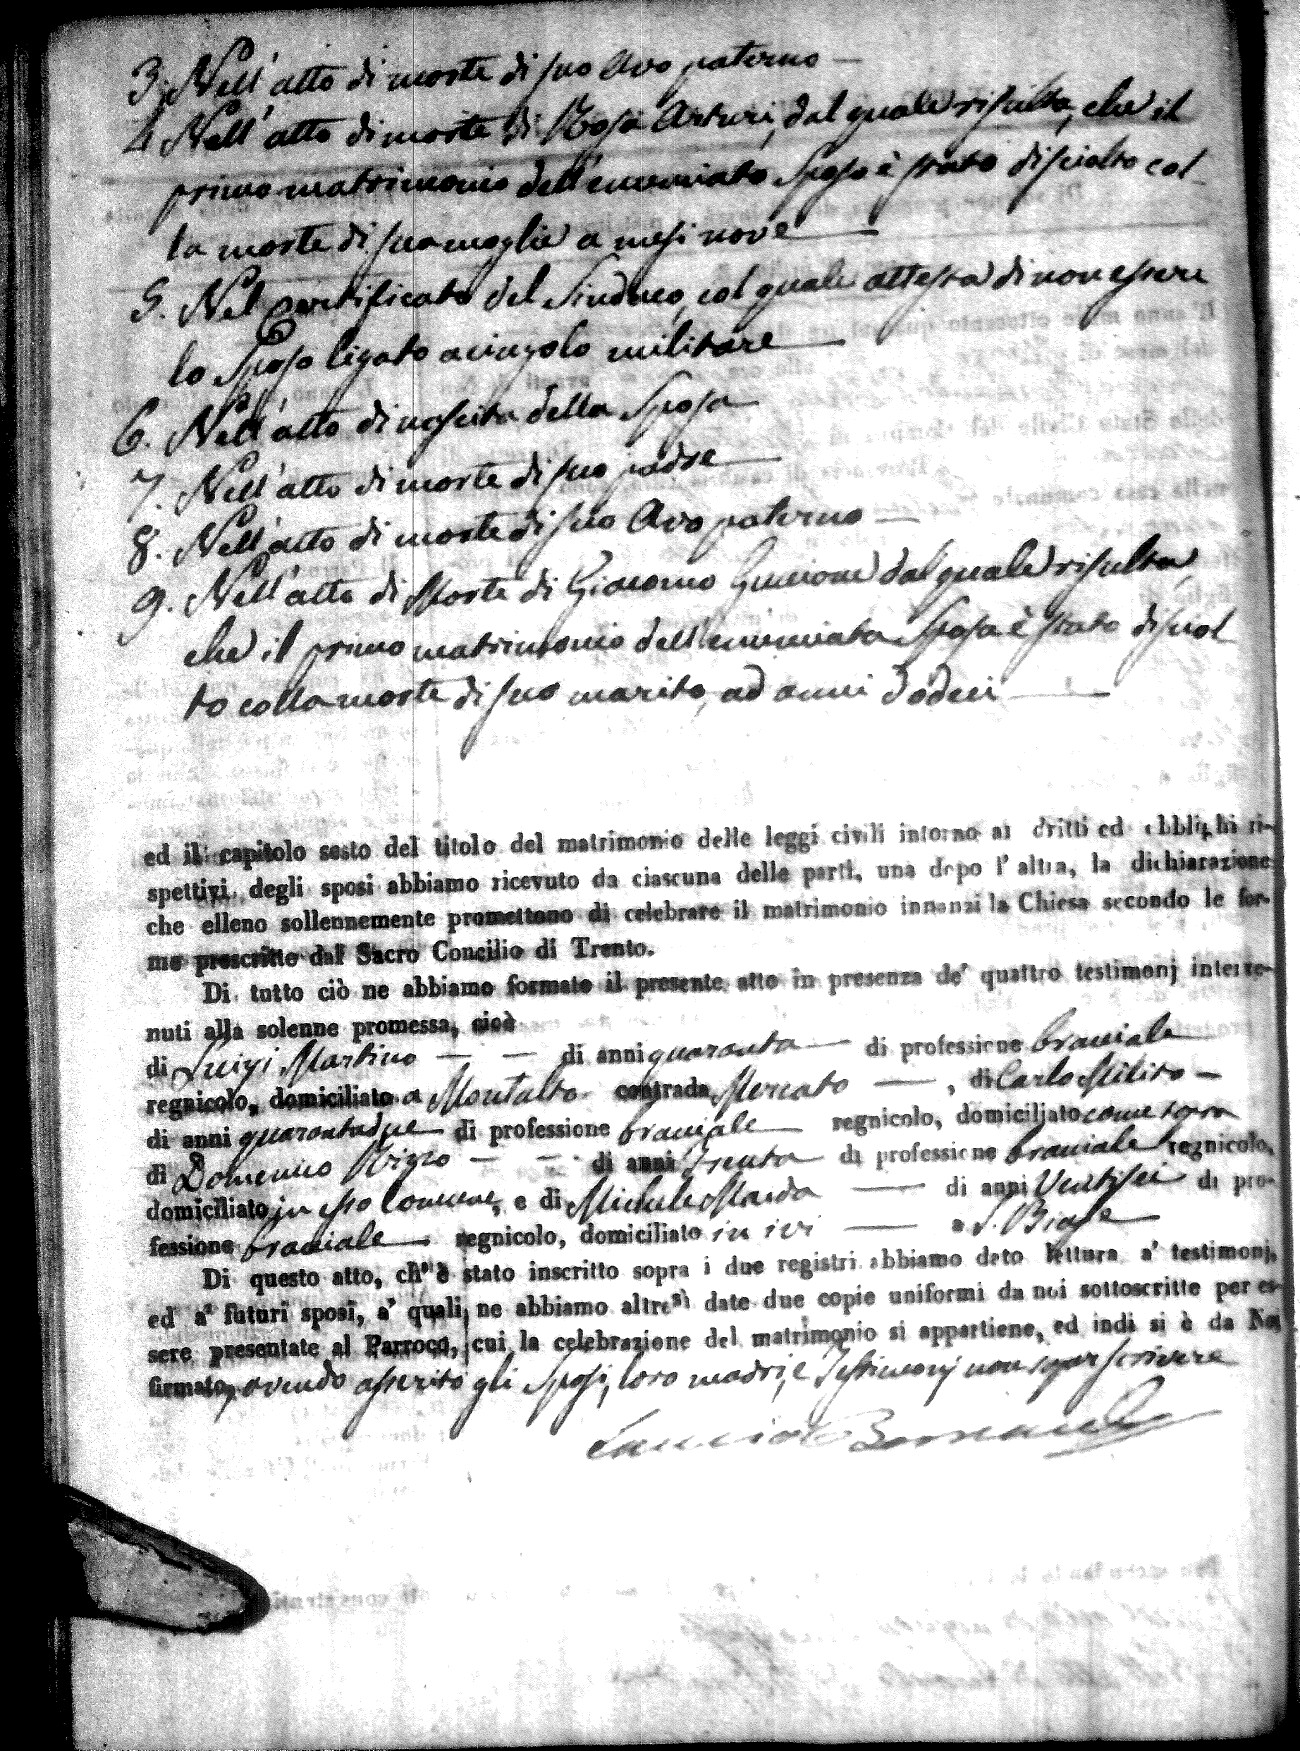 3. Nell'atto di morte di suo Avo paterno —
4 Nell'atto di morte di Rosa Arturi, dal quale risulta, che il
primo matrimonio dell'enunciato Sposo è stato disciolto col-
la morte di sua moglie a mesi nove —
5. Nel certificato del Sindaco, col quale attesta di non essere
lo Sposo ligato a cingolo militare —
6. Nell'atto di nascita della Sposa —
7. Nell'atto di morte di suo padre —
8. Nell'atto di morte di suo Avo paterno —
9. Nell'atto di Morte di Giacomo dal quale risulta,
che il primo matrimonio dell'enunciata Sposa è stato disciol
to colla morte di suo marito, ad anni dodeci —
ed il capitolo sesto del titolo del matrimonio delle leggi civili intorno ai dritti ed obblighi ri-
spettivi degli sposi abbiamo ricevuto da ciascuna delle parti, una dopo l'altra, la dichiarazione
che elleno sollennemente promettono di celebrare il matrimonio innanzi la Chiesa secondo le for-
me prescritte dal Sacro Concilio di Trento.
Di tutto ciò ne abbiamo formato il presente atto in presenza de' quattro testimonj interve-
nuti alla solenne promessa, cioè
di Luigi Martino — — di anni quaranta — di professione bracciale
regnicolo, domiciliato a Montalto contrada Mercato — , di Carlo Milito —
di anni quarantadue di professione bracciale — regnicolo, domiciliato come sopra
di Domenico Rizzo — — di anni Trenta di professione bracciale regnicolo,
domiciliato in esso Comune, e di Michele — di anni Ventisei di pro-
fessione bracciale — regnicolo, domiciliato in ivi — a S. Biase
Di questo atto, ch'è stato inscritto sopra i due registri abbiamo dato lettura a' testimonj,
ed a' futuri sposi, a' quali ne abbiamo altresì date due copie uniformi da noi sottoscritte per es-
sere presentate al Parroco, cui la celebrazione del matrimonio si appartiene, ed indi si è da Noi
firmato, avendo asserito gli Sposi, loro madri, e Testimonj non saper scrivere